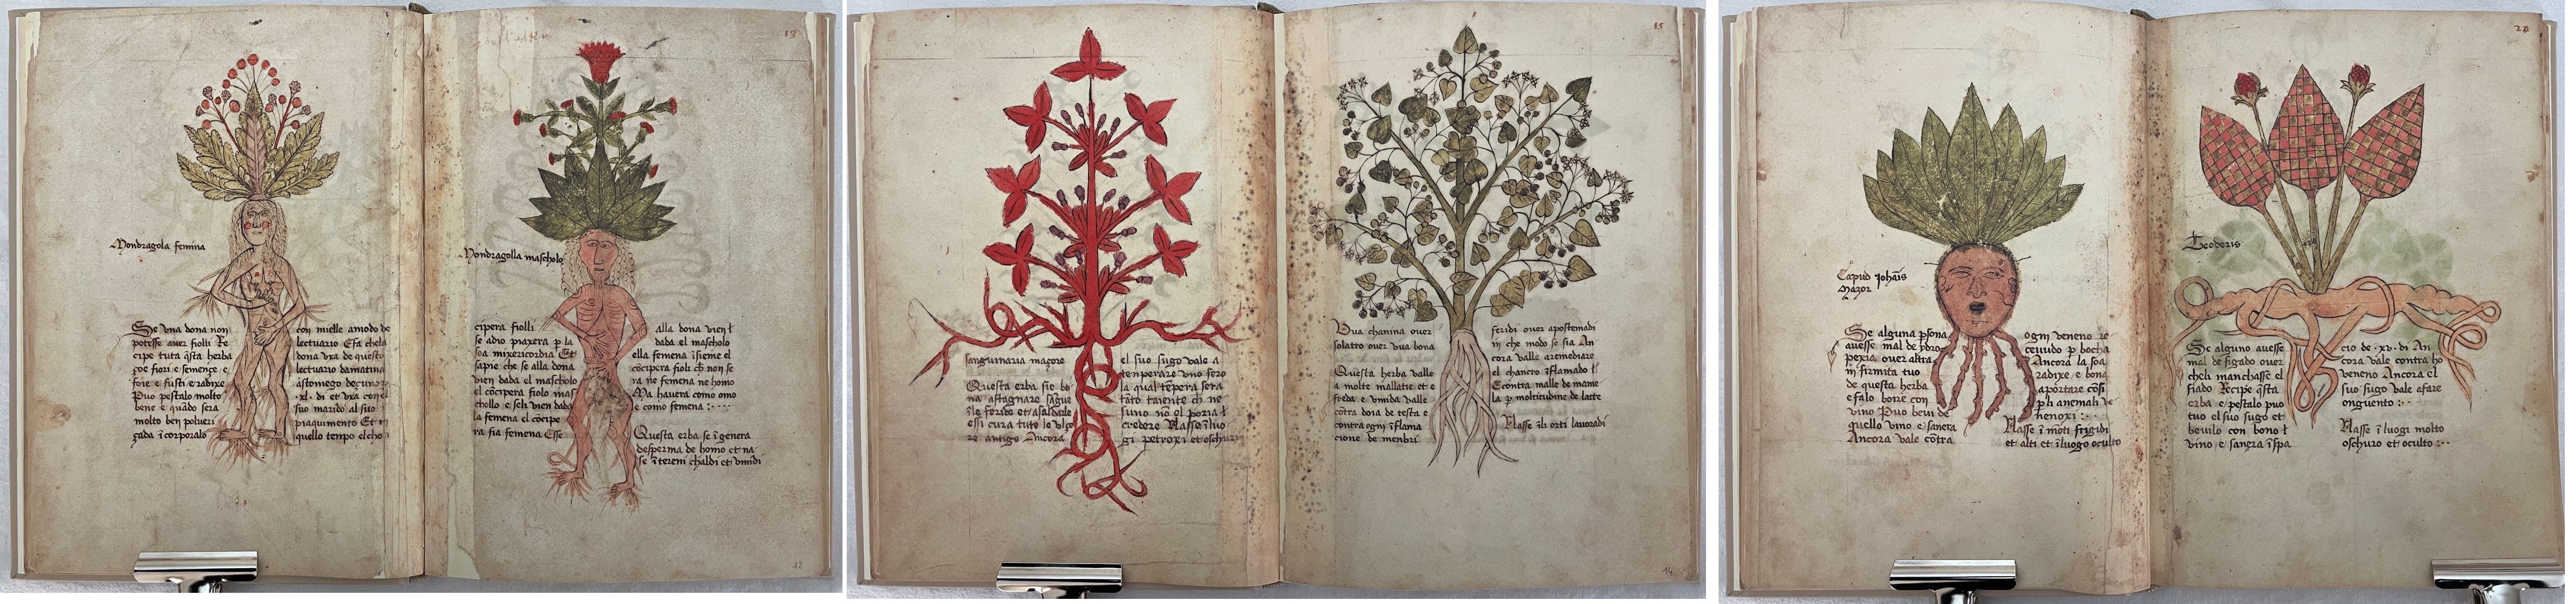 13
Mondragola femina
Se vna dona non
potesse auer fiolli Re
cipe tuta q̄sta herba
çoe fiori e semençe e
foie e fusti e radixe
Puo pestalo molto
bene e quādo sera
molto ben polueri
çada ī corporalo
con mielle amodo de
lectuario
dona vxa de questo
lectuario damatina
astomego deçuno
.xl. di et vxa con el
suo marido al suo
piaquimento Et in
quello tempo
Mondragolla mascholo
cipera fiolli
se adio piaxera p la
soa mixericordia Et
sapie che se alla dona
vien dada el mascholo
el cōcipera fiolo mas
cholo e seli vien dada
la femena el cōcipe
ra fia femena Esse
alla dona vien
dada el mascholo
ella femena īsieme el
cōcipera fioli ch non se
ra ne femena ne homo
Ma hauera como omo
e como femena
Questa erba se īgenera
desperma de homo et na
se ī tereni chaldi et vmidi
12
15
sanguinaria maçore
Questa erba sie bo
na astagnare sāgue
ale feride et asaldarle
essi cura tute le
re antige Ancora
el suo sugo vale a
tenperare vno fero
la qual tēpera sera
tāto taiente ch ne
suno nō ol poria
credere Nasse
gi petroxi et oschuri
Vua chanina ouer
solatro ouer vua bona
Questa herba valle
a molte mallatie et e
freda e vmida valle
cōtra doia de testa e
contra ogni īflama
cione de menbri
feridi ouer apostemadi
in che modo se sia An
cora valle aremediare
el chancro īflamado
Econtra malle de mame
la p moltitudine de latte
Nasse īli orti lauoradi
14
Capud Johāis
Mazor
Se alguna psona
auesse mal de
pexia ouer altra
in firmita tuo
de questa herba
e falo boire con
vino Puo beui de
quello vino e sanera
Ancora vale cōtra
ogni veneno re
ceuudo p bocha
Ancora la soa
radixe e bona
aportare cōsi
p li anemali
Nasse ī mōti frigidi
et alti et ī luogo oculto
Teoberis
Se alguno auesse
mal de figado ouer
cheli manchasse el
fiado Recipe q̄sta
erba e pestalo puo
tuo el suo sugo et
beuilo con bono
vino e sanera ī spa
cio de .xv. di An
cora vale contra ho
veneno Ancora el
suo sugo vale afare
onguento
Nasse ī luogi molto
oschuro et oculto